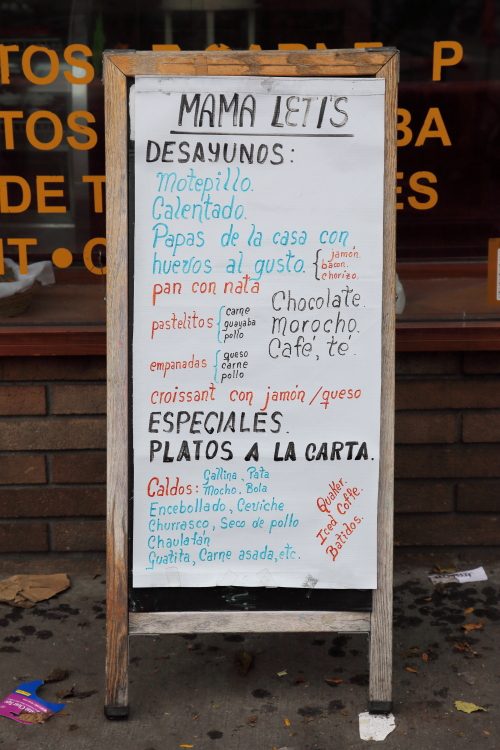 TOS
P
TOS
BA
DE
ES
MAMA LETI'S
DESAYUNOS:
Motepillo.
Calentado.
Papas de la casa con
huevos al gusto. { jamón.
bacon.
chorizo.
pan con nata
Chocolate.
Morocho.
Café, té.
pastelitos { carne
guayaba
pollo
empanadas { queso
carne
pollo
croissant con jamón/queso
ESPECIALES.
PLATOS A LA CARTA.
Caldos: Gallina, Pata
Mocho, Bola
Encebollado, Ceviche
Churrasco, Seco de pollo
Chaulafán
Guatita, Carne asada, etc.
Quaker.
Iced Coffe.
Batidos.